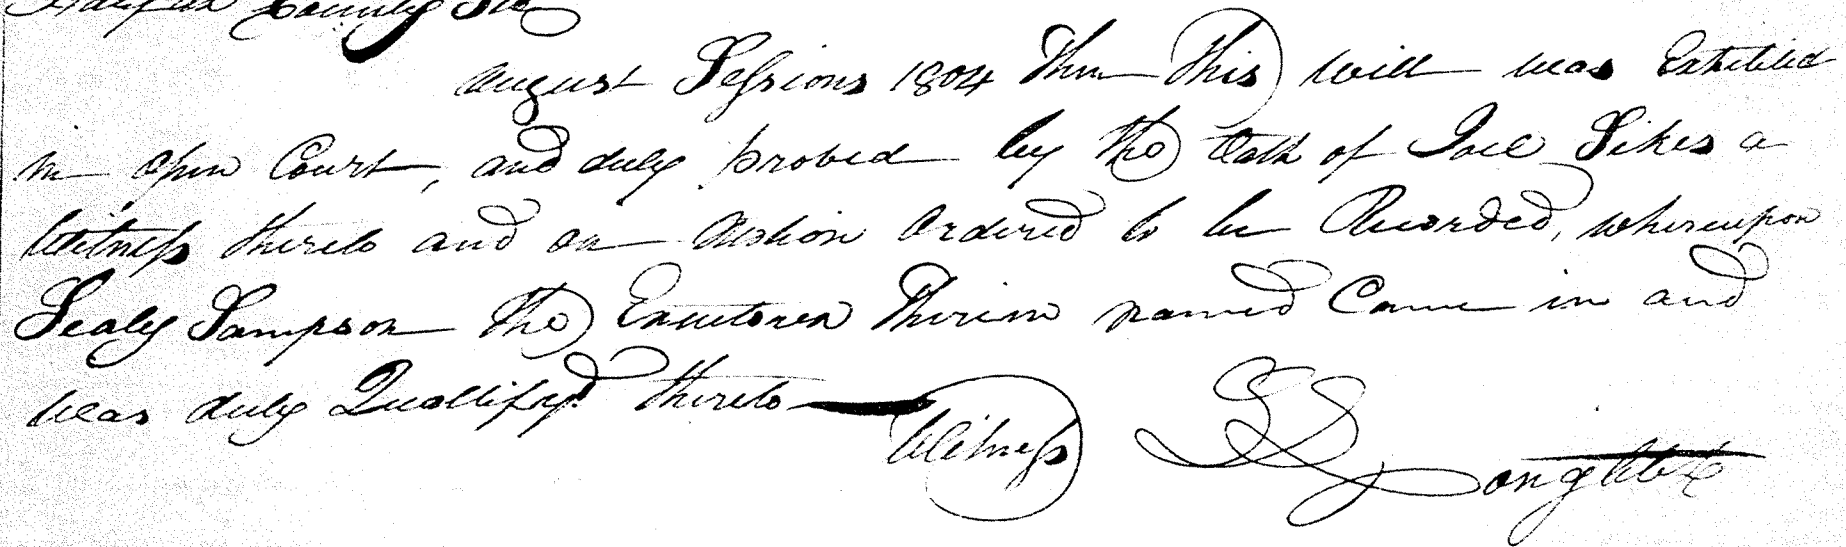 Halifax County Sct
August Sessions 1804 Then This will was Exhibited
in open Court, and duly proved by the Oath of Joel Sikes a
Witness thereto and on Motion Ordered to be Recorded, whereupon
Sealy Sampson the Executorex Therein named Came in and
was duly Quallifyd thereto
Witness Long